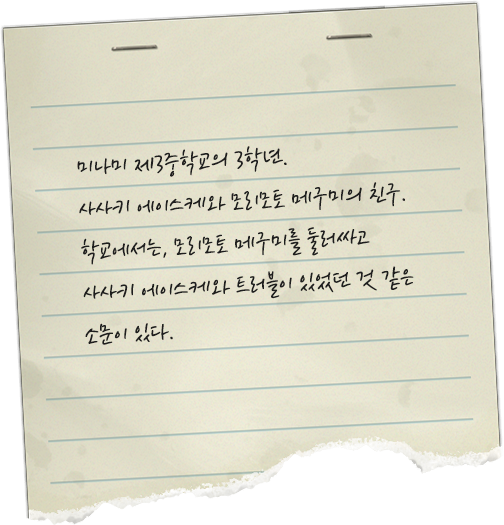 미나미 제3중학교의 3학년.
사사키 에이스케와 모리모토 메구미의 친구.
학교에서는, 모리모토 메구미를 둘러싸고
사사키 에이스케와 트러블이 있었던 것 같은
소문이 있다.